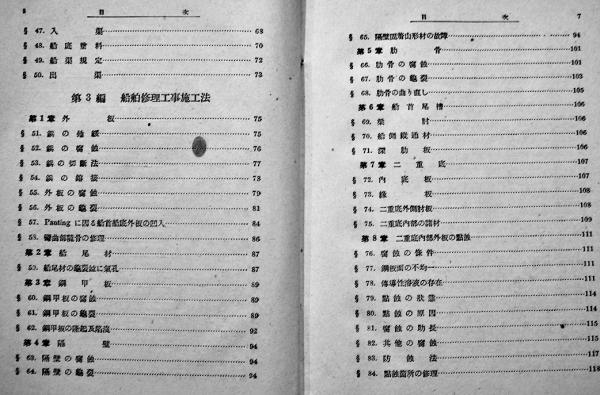 8 目次
§ 47. 入渠 68
§ 48. 船底塗料 70
§ 49. 船渠規定 72
§ 50. 出渠 73
第3編 船舶修理工事施工法
第1章 外板 75
§ 51. 鋲の弛緩 75
§ 52. 鋲の腐蝕 76
§ 53. 鋲の切断法 77
§ 54. 鋲の 78
§ 55. 外板の腐蝕 79
§ 56. 外板の龜裂 81
§ 57. Panting に因る船首船底外板の凹入 84
§ 58. 彎曲部龍骨の修理 86
第2章 船尾材 87
§ 59. 船尾材の龜裂並に氣孔 87
第3章 鋼甲板 89
§ 60. 鋼甲板の腐蝕 89
§ 61. 鋼甲板の龜裂 89
§ 62. 鋼甲板の隆起及陷沒 92
第4章 隔壁 94
§ 63. 隔壁の腐蝕 94
§ 64. 隔壁の龜裂 94
目次 7
§ 65. 隔壁固着山形材の故障 94
第5章 肋骨 101
§ 66. 肋骨の腐蝕 101
§ 67. 肋骨の龜裂 103
§ 68. 肋骨の曲り直し 105
第6章 船首尾槽 106
§ 69. 梁肘 106
§ 70. 船側縱通材 106
§ 71. 深肋板 106
第7章 二重底 107
§ 72. 內底板 107
§ 73. 緣板 108
§ 74. 二重底外側肘板 108
§ 75. 二重底內部の諸材 109
第8章 二重底內部外板の點蝕 111
§ 76. 腐蝕の條件 111
§ 77. 鋼板面の不均一 111
§ 78. 傳導性溶液の存在 111
§ 79. 點蝕の狀態 114
§ 80. 點蝕の原因 114
§ 81. 腐蝕の助長 115
§ 82. 其他の腐蝕 115
§ 83. 防蝕法 117
§ 84. 點蝕箇所の修理 118